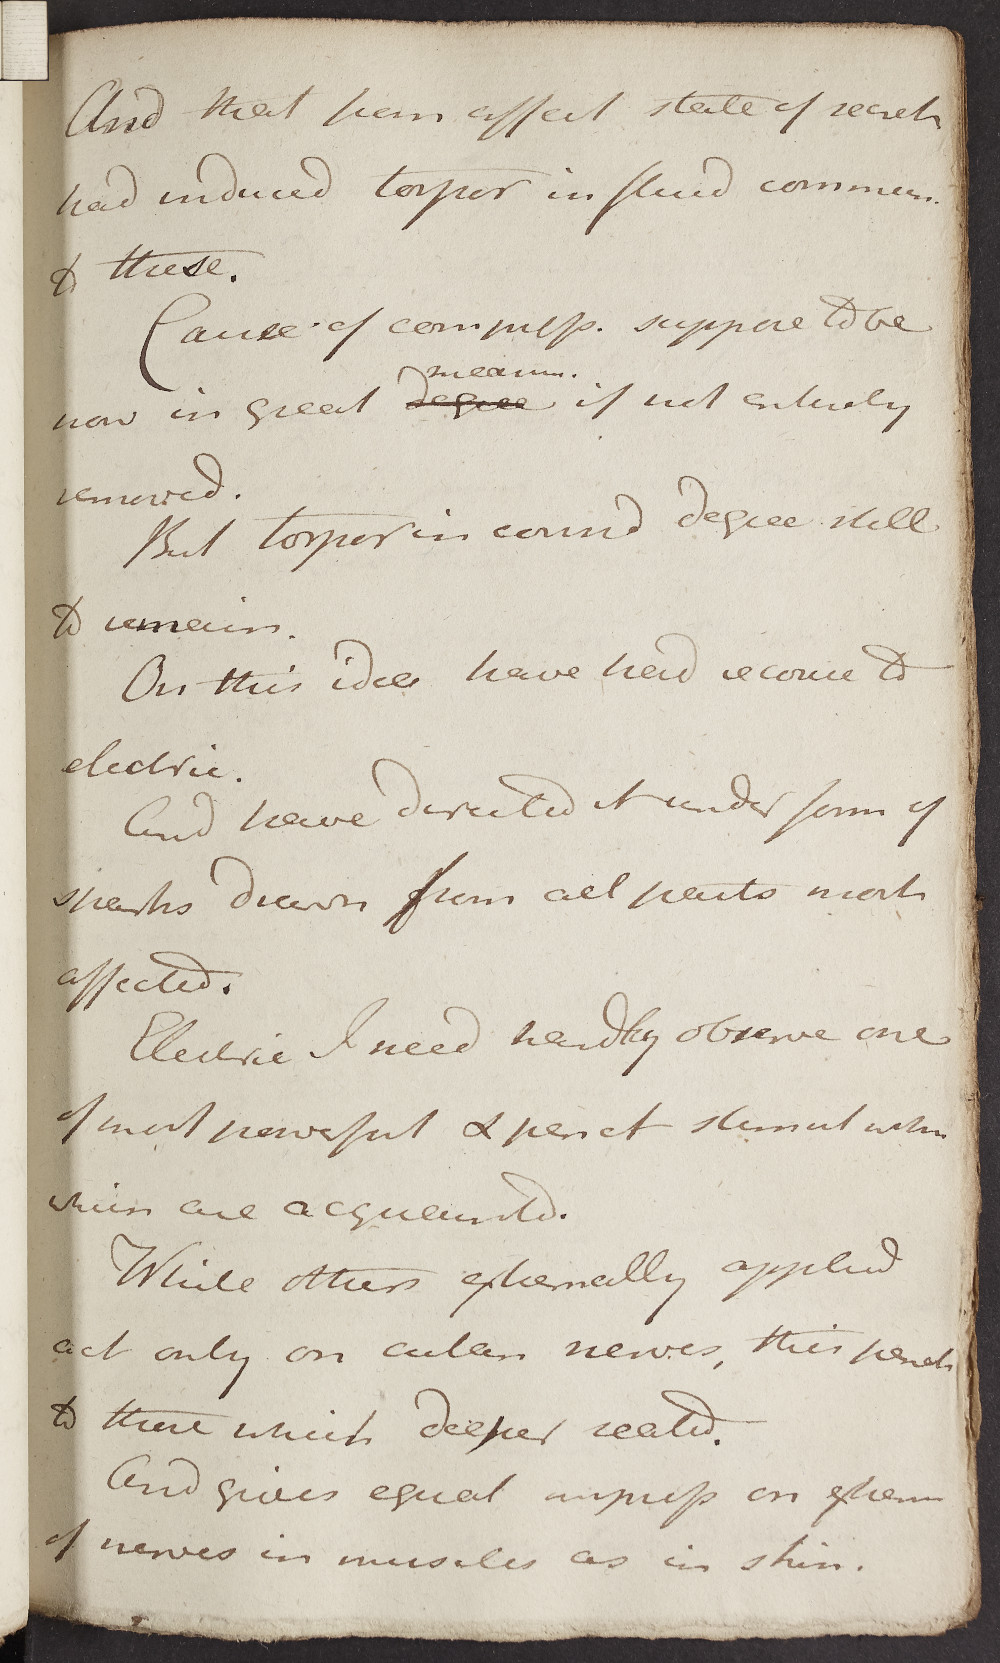 And that from affect state of
had induced torpor in fluid commun.
to these.
Cause of compress. suppose to be
now in great measur. degree if not entirely
removed.
But torpor in consid degree still
to remain.
On this idea have had recourse to
electric.
And have directed it under form of
sparks drawn from all parts most
affected.
Electric I need hardly observe one
of most powerful & penet stimul with
which are acquainted.
While others externally applied
act only on cutan nerves, this penet
to those which deeper seated.
And gives equal impress on extrem
of nerves in muscles as in skin.